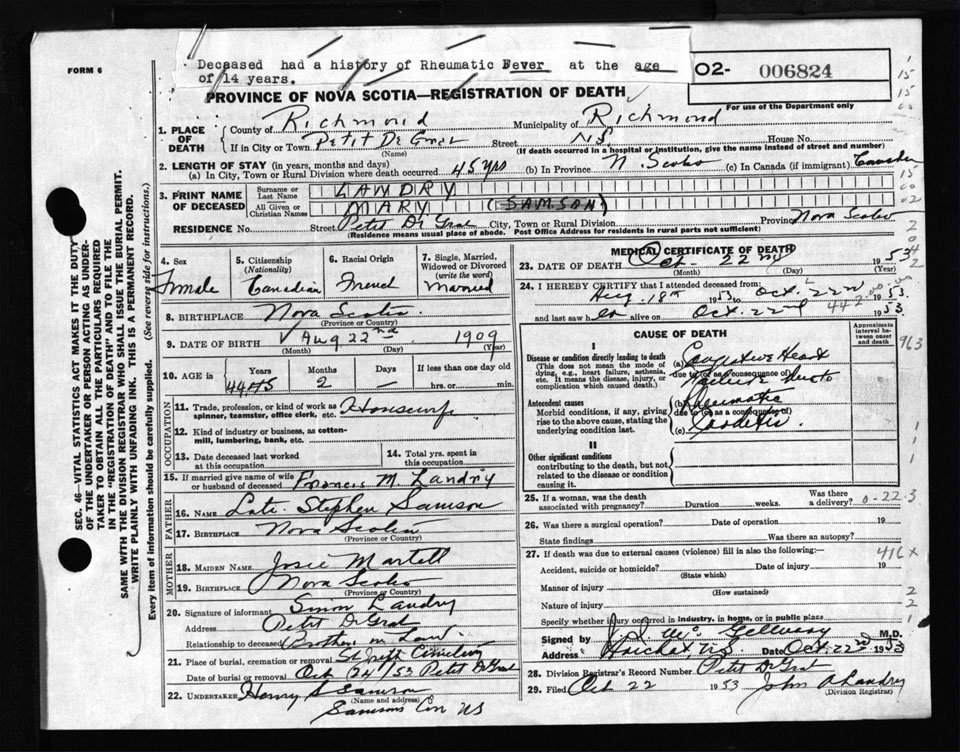 Deceased had a history of Rheumatic Fever at the age
of 14 years.
FORM 6
O2- 006824
PROVINCE OF NOVA SCOTIA—REGISTRATION OF DEATH
For use of the Department only
1. PLACE OF DEATH { County of Richmond Municipality of Richmond
If in City or Town Petit De Grat Street N.S. House No.
(Name) (If death occurred in a hospital or institution, give the name instead of street and number)
2. LENGTH OF STAY (in years, months and days)
(a) In City, Town or Rural Division where death occurred 45 yrs (b) In Province N. Scotia (c) In Canada (if immigrant)
3. PRINT NAME OF DECEASED { Surname or Last Name LANDRY
All Given or Christian Names MARY (SAMSON)
RESIDENCE No. Street Petit De Grat City, Town or Rural Division Province Nova Scotia
(Residence means usual place of abode. Post Office Address for residents in rural parts not sufficient)
4. Sex Female
5. Citizenship (Nationality) Canadian
6. Racial Origin French
7. Single, Married, Widowed or Divorced (write the word) Married
8. BIRTHPLACE Nova Scotia
(Province or Country)
9. DATE OF BIRTH Aug 22nd 1909
(Month) (Day) (Year)
10. AGE in Years 44 Months 2 Days - If less than one day
hrs. or min.
OCCUPATION
11. Trade, profession, or kind of work as spinner, teamster, office clerk, etc. Housewife
12. Kind of industry or business, as cotton-mill, lumbering, bank, etc.
13. Date deceased last worked at this occupation
14. Total yrs. spent in this occupation
15. If married give name of wife or husband of deceased Francis M. Landry
FATHER
16. Name Late Stephen Samson
17. Birthplace Nova Scotia
(Province or Country)
MOTHER
18. MAIDEN NAME Josie Martell
19. BIRTHPLACE Nova Scotia
(Province or Country)
20. Signature of informant Simon Landry
Address Petit De Grat
Relationship to deceased Brother in Law
21. Place of burial, cremation or removal Cemetery
Date of burial or removal Oct 24/53 Petit De Grat
22. UNDERTAKER Henry S Samson
(Name and address)
Samsons Cove NS
MEDICAL CERTIFICATE OF DEATH
23. DATE OF DEATH Oct. 22nd 1953
(Month) (Day) (Year)
24. I HEREBY CERTIFY that I attended deceased from
Aug. 18th 1953 to Oct. 22nd 1953.
and last saw her alive on Oct. 22nd 1953
CAUSE OF DEATH
Approximate interval between onset and death
I
Disease or condition directly leading to death
(This does not mean the mode of dying, e.g., heart failure, asthenia, etc. It means the disease, injury, or complication which caused death.)
(a) Congestive Heart
due to (or as a consequence of)
Failure due to
Antecedent causes
Morbid conditions, if any, giving rise to the above cause, stating the underlying condition last.
(b) Rheumatic
due to (or as a consequence of)
(c) Carditis.
II
Other significant conditions
contributing to the death, but not related to the disease or condition causing it.
25. If a woman, was the death associated with pregnancy? Duration weeks. Was there a delivery?
26. Was there a surgical operation? Date of operation 19
State findings Was there an autopsy?
27. If death was due to external causes (violence) fill in also the following:
Accident, suicide or homicide? Date of injury 19
(State which)
Manner of injury
(How sustained)
Nature of injury
Specify whether injury occurred in industry, in home, or in public place
Signed by M.D.
Address Arichat, N.S. Date Oct. 22nd 1953
28. Division Registrar's Record Number Petit De Grat
29. Filed Oct 22 1953 John A Landry
(Division Registrar)
SEC. 46—VITAL STATISTICS ACT MAKES IT THE DUTY
OF THE UNDERTAKER OR PERSON ACTING AS UNDER-
TAKER TO OBTAIN ALL THE PARTICULARS REQUIRED
IN THE "REGISTRATION OF DEATH" AND TO FILE THE
SAME WITH THE DIVISION REGISTRAR WHO SHALL ISSUE THE BURIAL PERMIT.
WRITE PLAINLY WITH UNFADING INK. THIS IS A PERMANENT RECORD.
Every item of information should be carefully supplied. (See reverse side for instructions.)